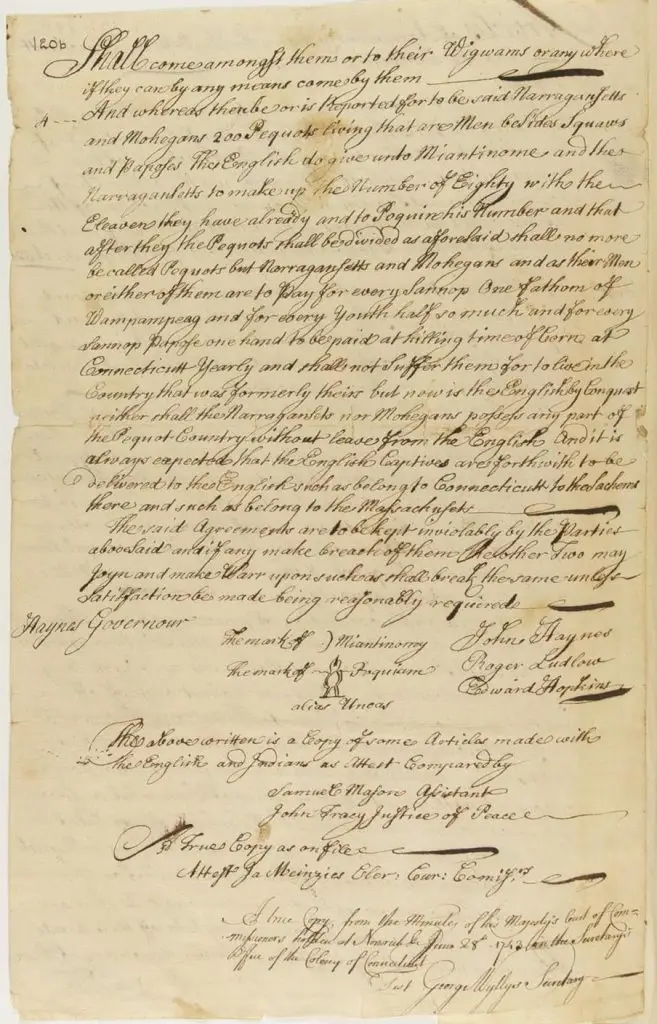 120b
Shall come amongst them or to their Wigwams or any where
if they can by any means come by them
4 And whereas there be or is Reported for to be said Narragansetts
and Mohegans 200 Pequots living that are Men besides Squaws
and Paposes The English do give unto Miantinome and the
Narragansetts to make up the Number of Eighty with the
Eleaven they have already and to Poquim his Number and that
after they the Pequots shall be divided as aforesaid shall no more
be called Pequots but Narragansetts and Mohegans and as their Men
or either of them are to Pay for every Sannop One fathom of
Wampampeag and for every Youth half so much and for every
Sannop Papose one hand to be paid at killing time of Corn at
Connecticutt Yearly and shall not Suffer them for to live in the
Country that was formerly theirs but now is the English by Conquest
neither shall the Narragansets nor Mohegans possess any part of
the Pequot Country without leave from the English And it is
always expected that the English Captives are forthwith to be
delivered to the English such as belong to Connecticutt to the Sachems
there and such as belong to the Massachusets
The said Agreements are to be kept inviolably by the Parties
abovesaid and if any make breach of them the other Two may
Joyn and make Warr upon such as shall break the same unless
Satisfaction be made being reasonably required
Haynes Governour
The mark of ) Miantinomy
John Haynes
The mark of Poquiam
Roger Ludlow
alias Uncas
Edward Hopkins
The above written is a Copy of some Articles made with
the English and Indians as Attest Compared by
Samuel Mason Assistant
John Tracy Justice of Peace
A True Copy as on file
Attest Ja Meinzies Cler: Cur: Comiss:rs
A true Copy, from the Minutes of his Majesty's Court of Com=
missioners holden at Norwich June 28th 1743 in the Secretary's
Office of the Colony of Connecticut
Test George Wyllys Secretary